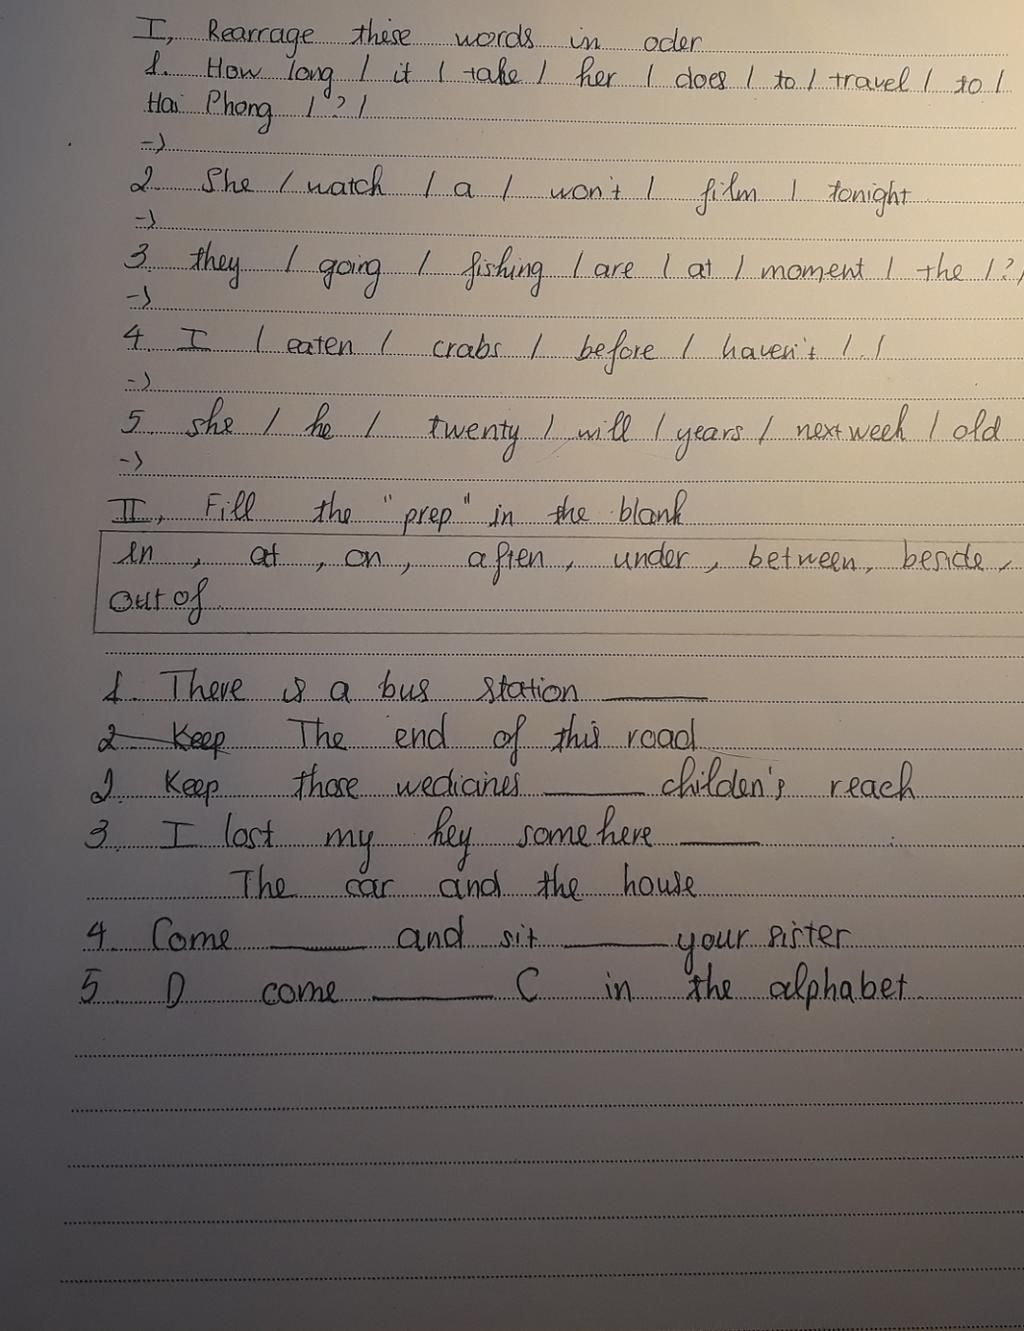 I, Rearrage these words in oder
1. How long / it / take / her / does / to / travel / to /
Hai Phong / ? /
->
2. She / watch / a / won't / film / tonight
->
3. they / going / fishing / are / at / moment / the / ? /
->
4. I / eaten / crabs / before / haven't / . /
->
5. she / he / twenty / will / years / next week / old
->
II, Fill the "prep" in the blank
in, at, on, aften, under, between, beside,
out of
1. There is a bus station ______
2 Keep The end of this road
2. Keep those wedicines ______ childen's reach
3. I lost my hey somehere ______
The car and the house
4. Come ______ and sit ______ your sister
5 D come ______ C in the alphabet